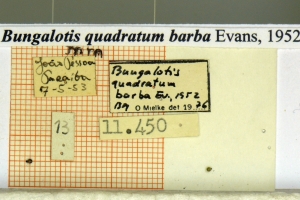 Bungalotis quadratum barba Evans, 1952
João Pessoa
7-5-53
Bungalotis
quadratum
barba Ev., 1952
O Mielke det 1976
13
11.450